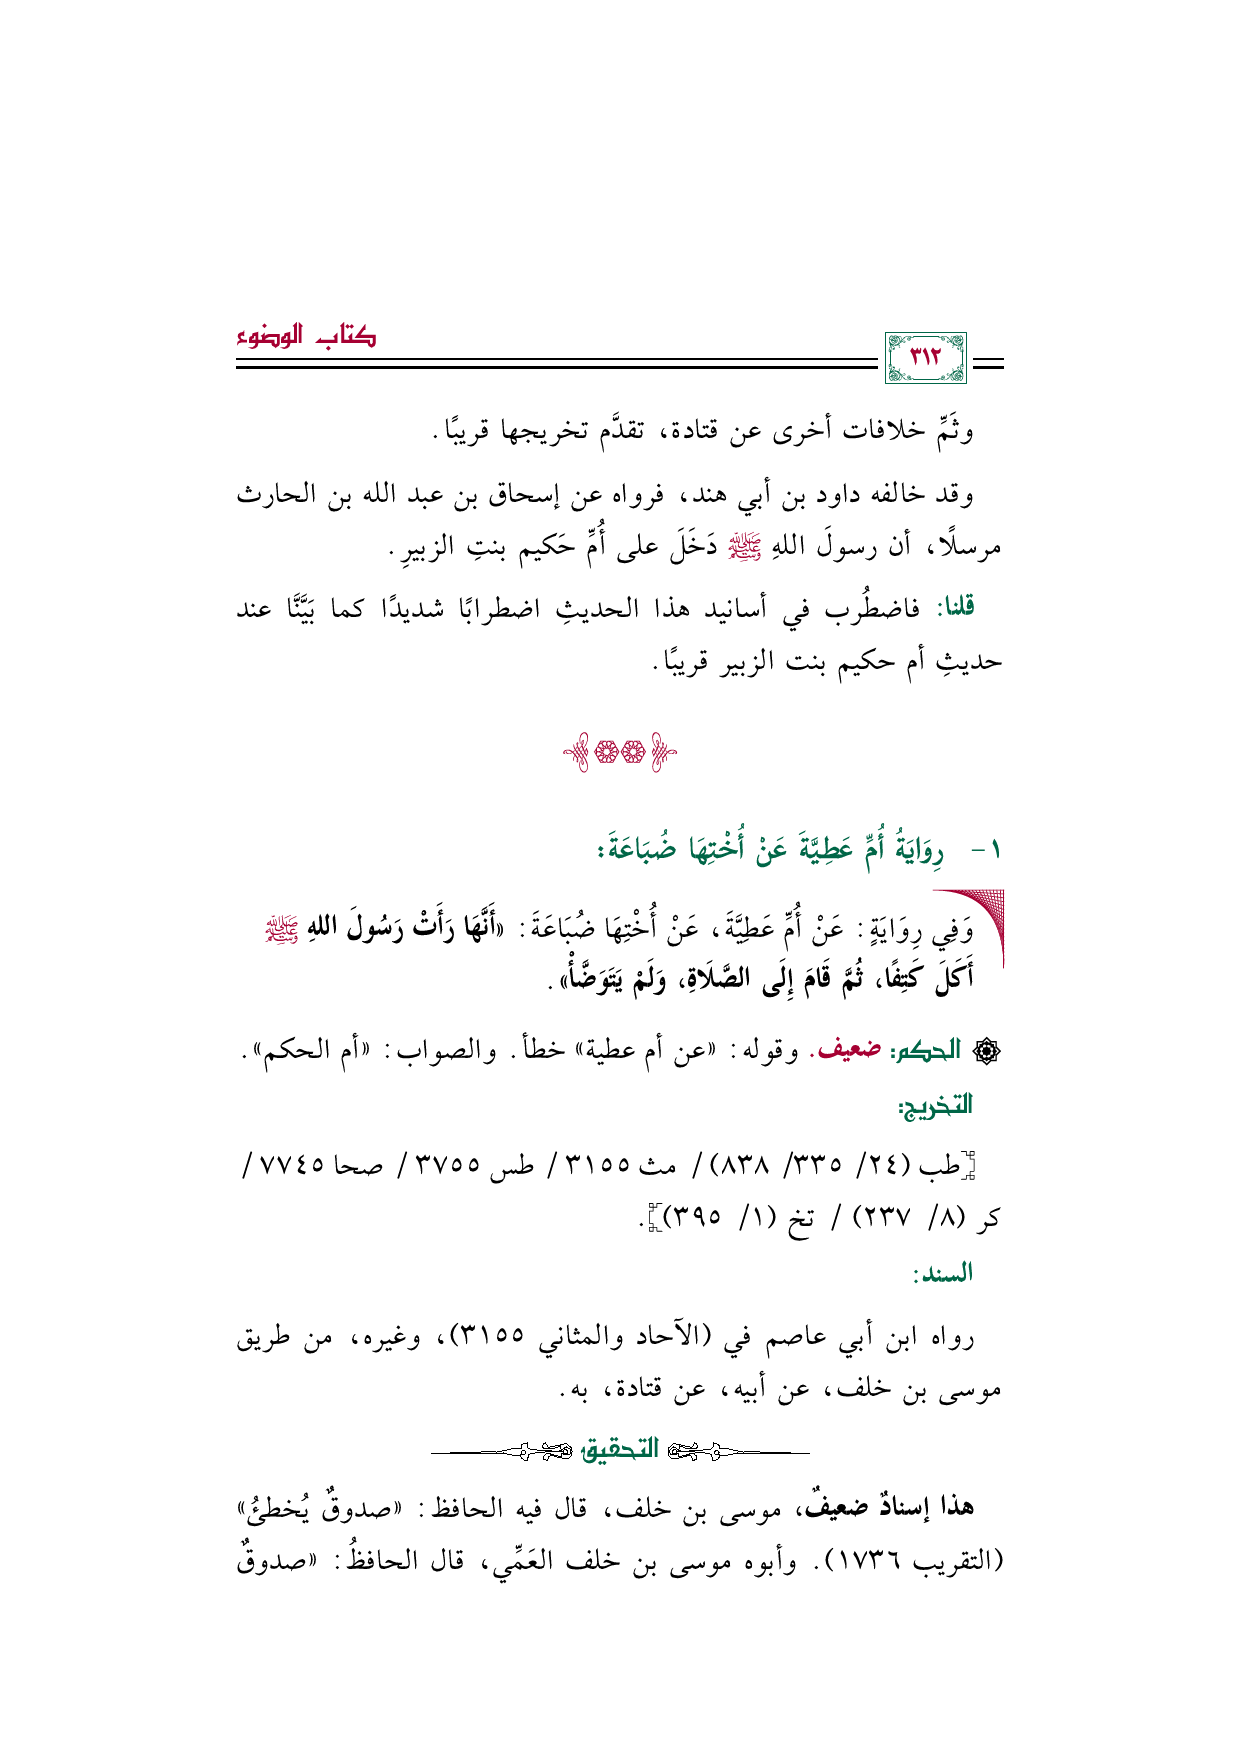 كتاب الوضوء
٣١٢
وثَمِّ خلافات أخرى عن قتادة، تقدَّم تخريجها قريبًا.
وقد خالفه داود بن أبي هند، فرواه عن إسحاق بن عبد الله بن الحارث
مرسلًا، أن رسولَ اللهِ ﷺ دَخَلَ على أُمِّ حَكيم بنتِ الزبيرِ.
قلنا: فاضطُرب في أسانيد هذا الحديثِ اضطرابًا شديدًا كما بَيَّنَّا عند
حديثِ أم حكيم بنت الزبير قريبًا.
١- رِوَايَةُ أُمِّ عَطِيَّةَ عَنْ أُخْتِهَا ضُبَاعَةَ:
وَفِي رِوَايَةٍ: عَنْ أُمِّ عَطِيَّةَ، عَنْ أُخْتِهَا ضُبَاعَةَ: «أَنَّهَا رَأَتْ رَسُولَ اللهِ ﷺ
أَكَلَ كَتِفًا، ثُمَّ قَامَ إِلَى الصَّلَاةِ، وَلَمْ يَتَوَضَّأْ».
الحكم: ضعيف. وقوله: «عن أم عطية» خطأ. والصواب: «أم الحكم».
التخريج:
[طب (٢٤/ ٣٣٥/ ٨٣٨) / مث ٣١٥٥ / طس ٣٧٥٥ / صحا ٧٧٤٥ /
كر (٨/ ٢٣٧) / تخ (١/ ٣٩٥)].
السند:
رواه ابن أبي عاصم في (الآحاد والمثاني ٣١٥٥)، وغيره، من طريق
موسى بن خلف، عن أبيه، عن قتادة، به.
التحقيق
هذا إسنادٌ ضعيفٌ، موسى بن خلف، قال فيه الحافظ: «صدوقٌ يُخطئُ»
(التقريب ١٧٣٦). وأبوه موسى بن خلف العَمِّي، قال الحافظُ: «صدوقٌ